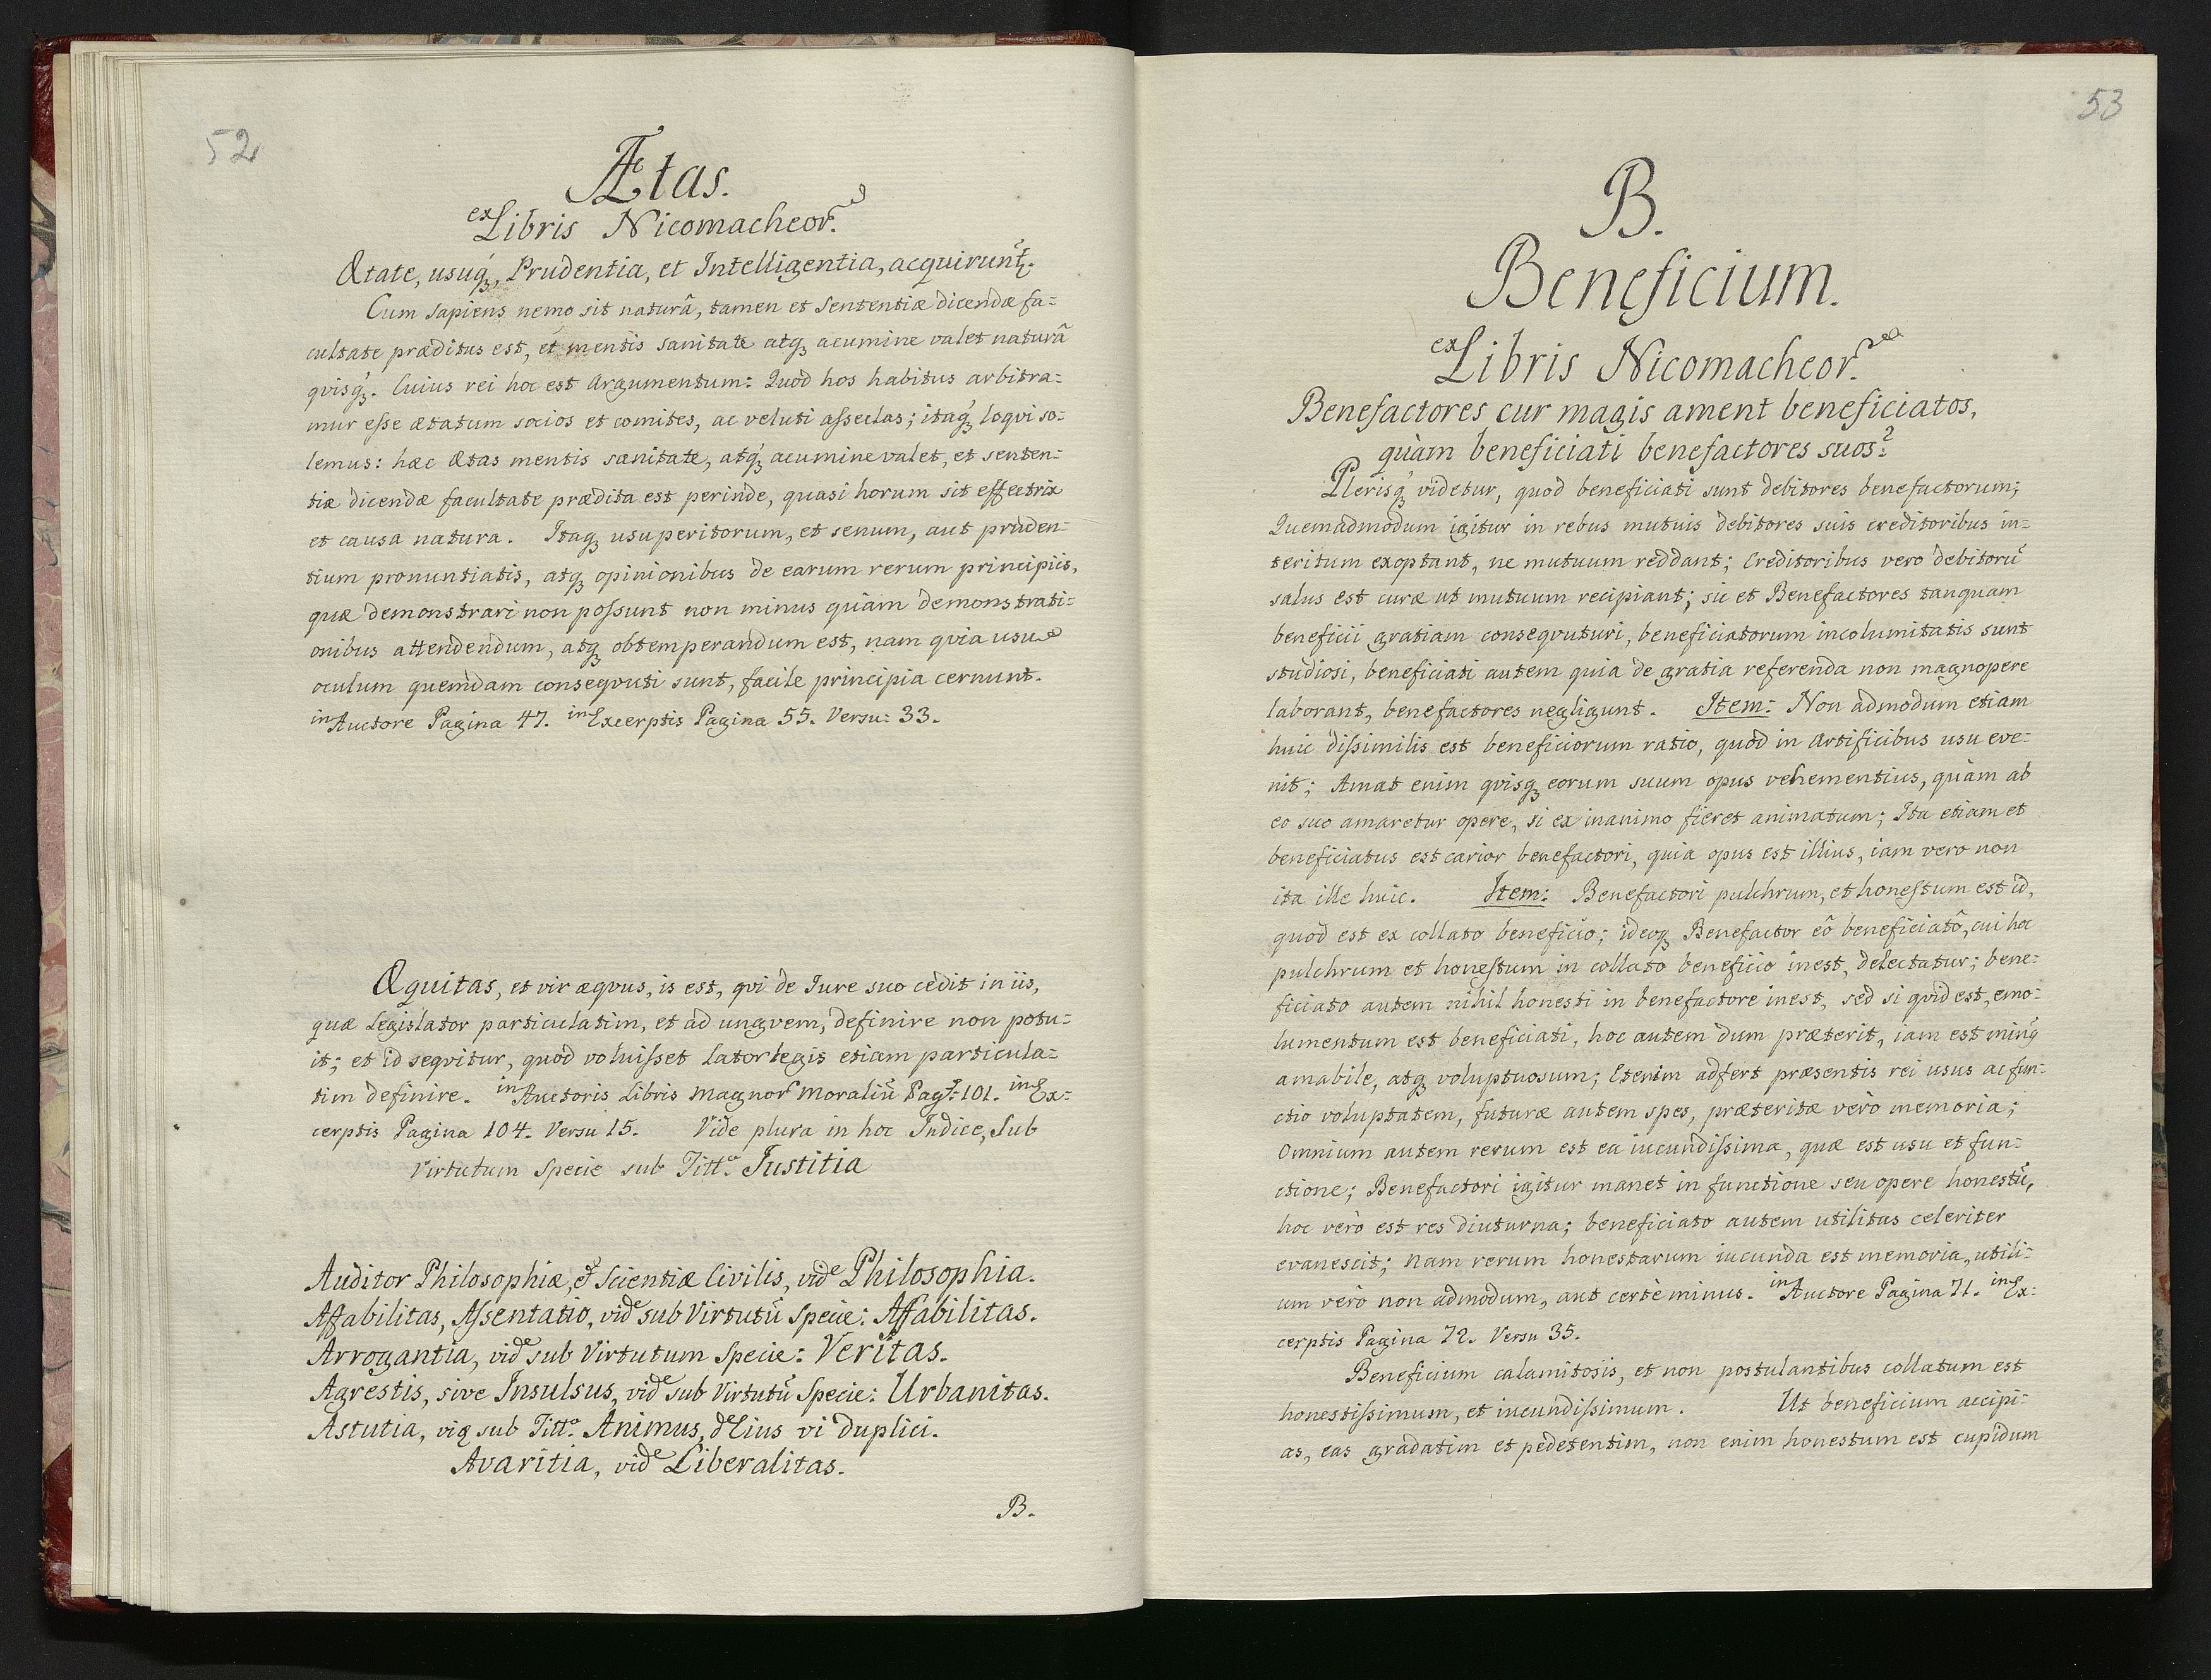 52
Ætas.
ex Libris Nicomacheor.
Ætate, usuq́3, Prudentia, et Intelligentia, acquirunt̃.
Cum sapiens nemo sit naturâ, tamen et sententiæ dicendæ fa=
cultate præditus est, et mentis sanitate atq3 acumine valet naturâ
qvisq́3. Cuius rei hoc est argumentum: Quod hos habitus arbitra=
mur eſse ætatum socios et comites, ac veluti aſseclas; itaq́3 loqvi so=
lemus: hæc ætas mentis sanitate, atq́3 acumine valet, et senten=
tiæ dicendæ facultate prædita est perinde, quasi horum sit effectrix
et causa natura. Itaq3 usu peritorum, et senum, aut pruden=
tium pronuntiatis, atq3 opinionibus de earum rerum principiis,
quæ demonstrari non poſsunt non minus quàm demonstrati=
onibus attendendum, atq3 obtemperandum est, nam qvia usu
oculum quemdam conseqvuti sunt, facile principia cernunt.
in Auctore Pagina 47. in Excerptis Pagina 55. Versu: 33.
Æquitas, et vir æqvus, is est, qvi de Iure suo cedit in iis,
quæ Legislator particulatim, et ad ungvem, definire non potu=
it; et id seqvitur, quod voluiſset Lator legis etiam particula=
tim definire. in Auctoris Libris Magnor Moraliũ Pag: 101. in Ex=
cerptis Pagina 104. Versu 15. Vide plura in hoc Indice, sub
Virtutum Specie sub Titto. Iustitia
Auditor Philosophiæ, et Scientiæ Civilis, vide Philosophia.
Affabilitas, Aſsentatio, vide sub Virtutũ Specie: Affabilitas.
Arrogantia, vide sub Virtutum Specie: Veritas.
Agrestis, sive Insulsus, vide sub Virtutũ Specie: Urbanitas.
Astutia, vide sub Titto. Animus, de Eius vi duplici.
Avaritia, vide Liberalitas.
B.
53
B.
Beneficium.
ex Libris Nicomacheor.
Benefactores cur magis ament beneficiatos,
quàm beneficiati benefactores suos?
Plerisq́3 videtur, quod beneficiati sunt debitores benefactorum;
Quemadmodum igitur in rebus mutuis debitores suis creditoribus in=
teritum exoptant, ne mutuum reddant; Creditoribus vero debitorũ
salus est curæ ut mutuum recipiant; sic et Benefactores tanquam
beneficii gratiam conseqvuturi, beneficiatorum incolumitatis sunt
studiosi, beneficiati autem quia de gratia referenda non magnopere
laborant, benefactores negligunt. Item: Non admodum etiam
huic diſsimilis est beneficiorum ratio, quod in Artificibus usu eve=
nit; Amat enim qvisq3 eorum suum opus vehementius, quàm ab
eo suo amaretur opere, si ex inanimo fieret animatum; Ita etiam et
beneficiatus est carior benefactori, quia opus est illius, iam vero non
ita ille huic. Item: Benefactori pulchrum, et honestum est id,
quod est ex collato beneficio; ideoq3 Benefactor eô beneficiatô, cui hoc
pulchrum et honestum in collato beneficio inest, delectatur; bene=
ficiato autem nihil honesti in benefactore inest, sed si qvid est, emo=
lumentum est beneficiati, hoc autem dum præterit, iam est minus
amabile, atq3 voluptuosum; Etenim adfert præsentis rei usus ac fun=
ctio voluptatem, futuræ autem spes, præteritæ verò memoria;
Omnium autem rerum est ea iucundiſsima, quæ est usu et fun=
ctione; Benefactori igitur manet in functione seu opere honestũ,
hoc verò est res diuturna; beneficiato autem utilitas celeriter
evanescit; nam rerum honestarum iucunda est memoria, utili=
um verò non admodum, aut certè minus. in Auctore Pagina 71. in Ex=
cerptis Pagina 72. Versu 35.
Beneficium calamitosis, et non postulantibus collatum est
honestiſsimum, et iucundiſsimum. Ut beneficium accipi=
as, eas gradatim et pedetentim, non enim honestum est cupidum